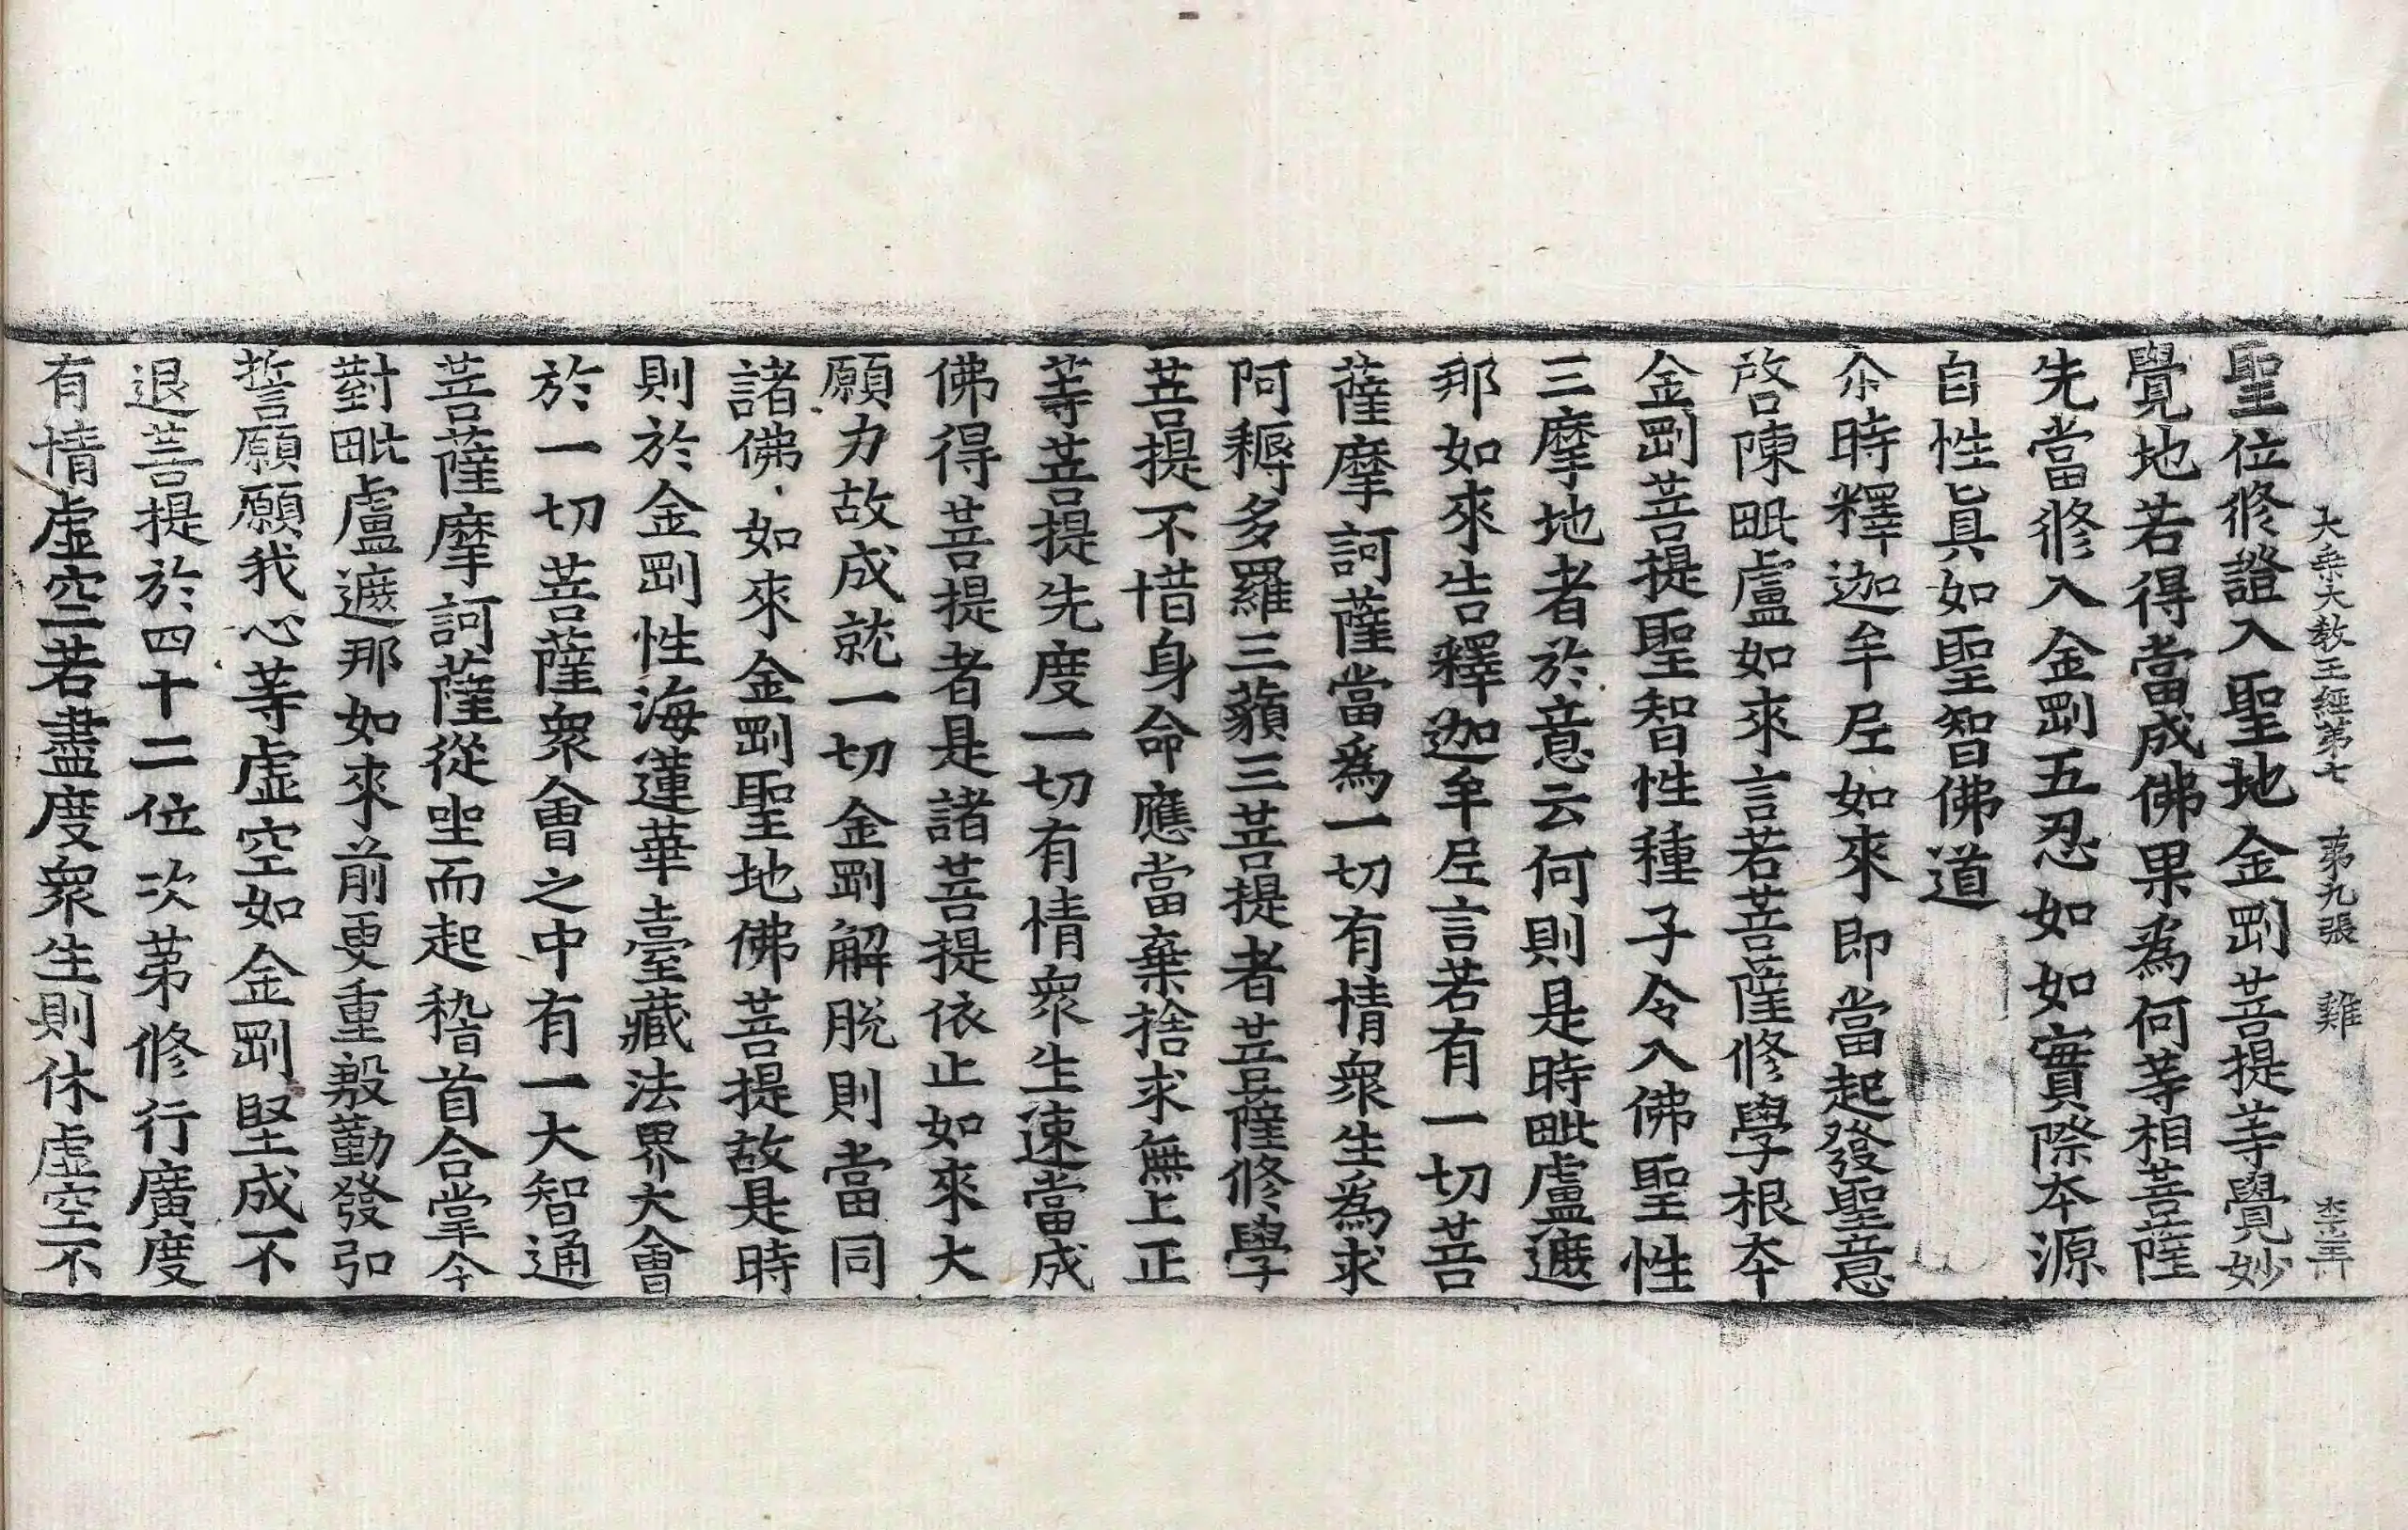 大乗大教王経第七 第九張 雞
聖位修證入聖地金剛菩提等覺妙
覺地若得當成佛果為何等相菩薩
先當修入金剛五忍如如實際夲源
自性真如聖智佛道
尒時釋迦牟𡰱如來即當起發聖意
啓陳毗盧如來言若菩薩修學根夲
金剛菩提聖智性種子令入佛聖性
三摩地者於意云何則是時毗盧遮
那如來告釋迦牟𡰱言若有一切菩
薩摩訶薩當為一切有情衆生為求
阿耨多羅三藐三菩提者菩薩修學
菩提不惜身命應當棄捨求無上正
等菩提先度一切有情衆生速當成
佛得菩提者是諸菩提依止如來大
願力故成就一切金剛解脫則當同
諸佛如來金剛聖地佛菩提故是時
則於金剛性海蓮華臺藏法界大會
於一切菩薩衆會之中有一大智通
菩薩摩訶薩從坐而起稽首合掌今
對毗盧遮那如來前更重慇勤發弘
誓願願我心等虛空如金剛堅成不
退菩提於四十二位次第修行廣度
有情虛空若盡度衆生則休虛空不